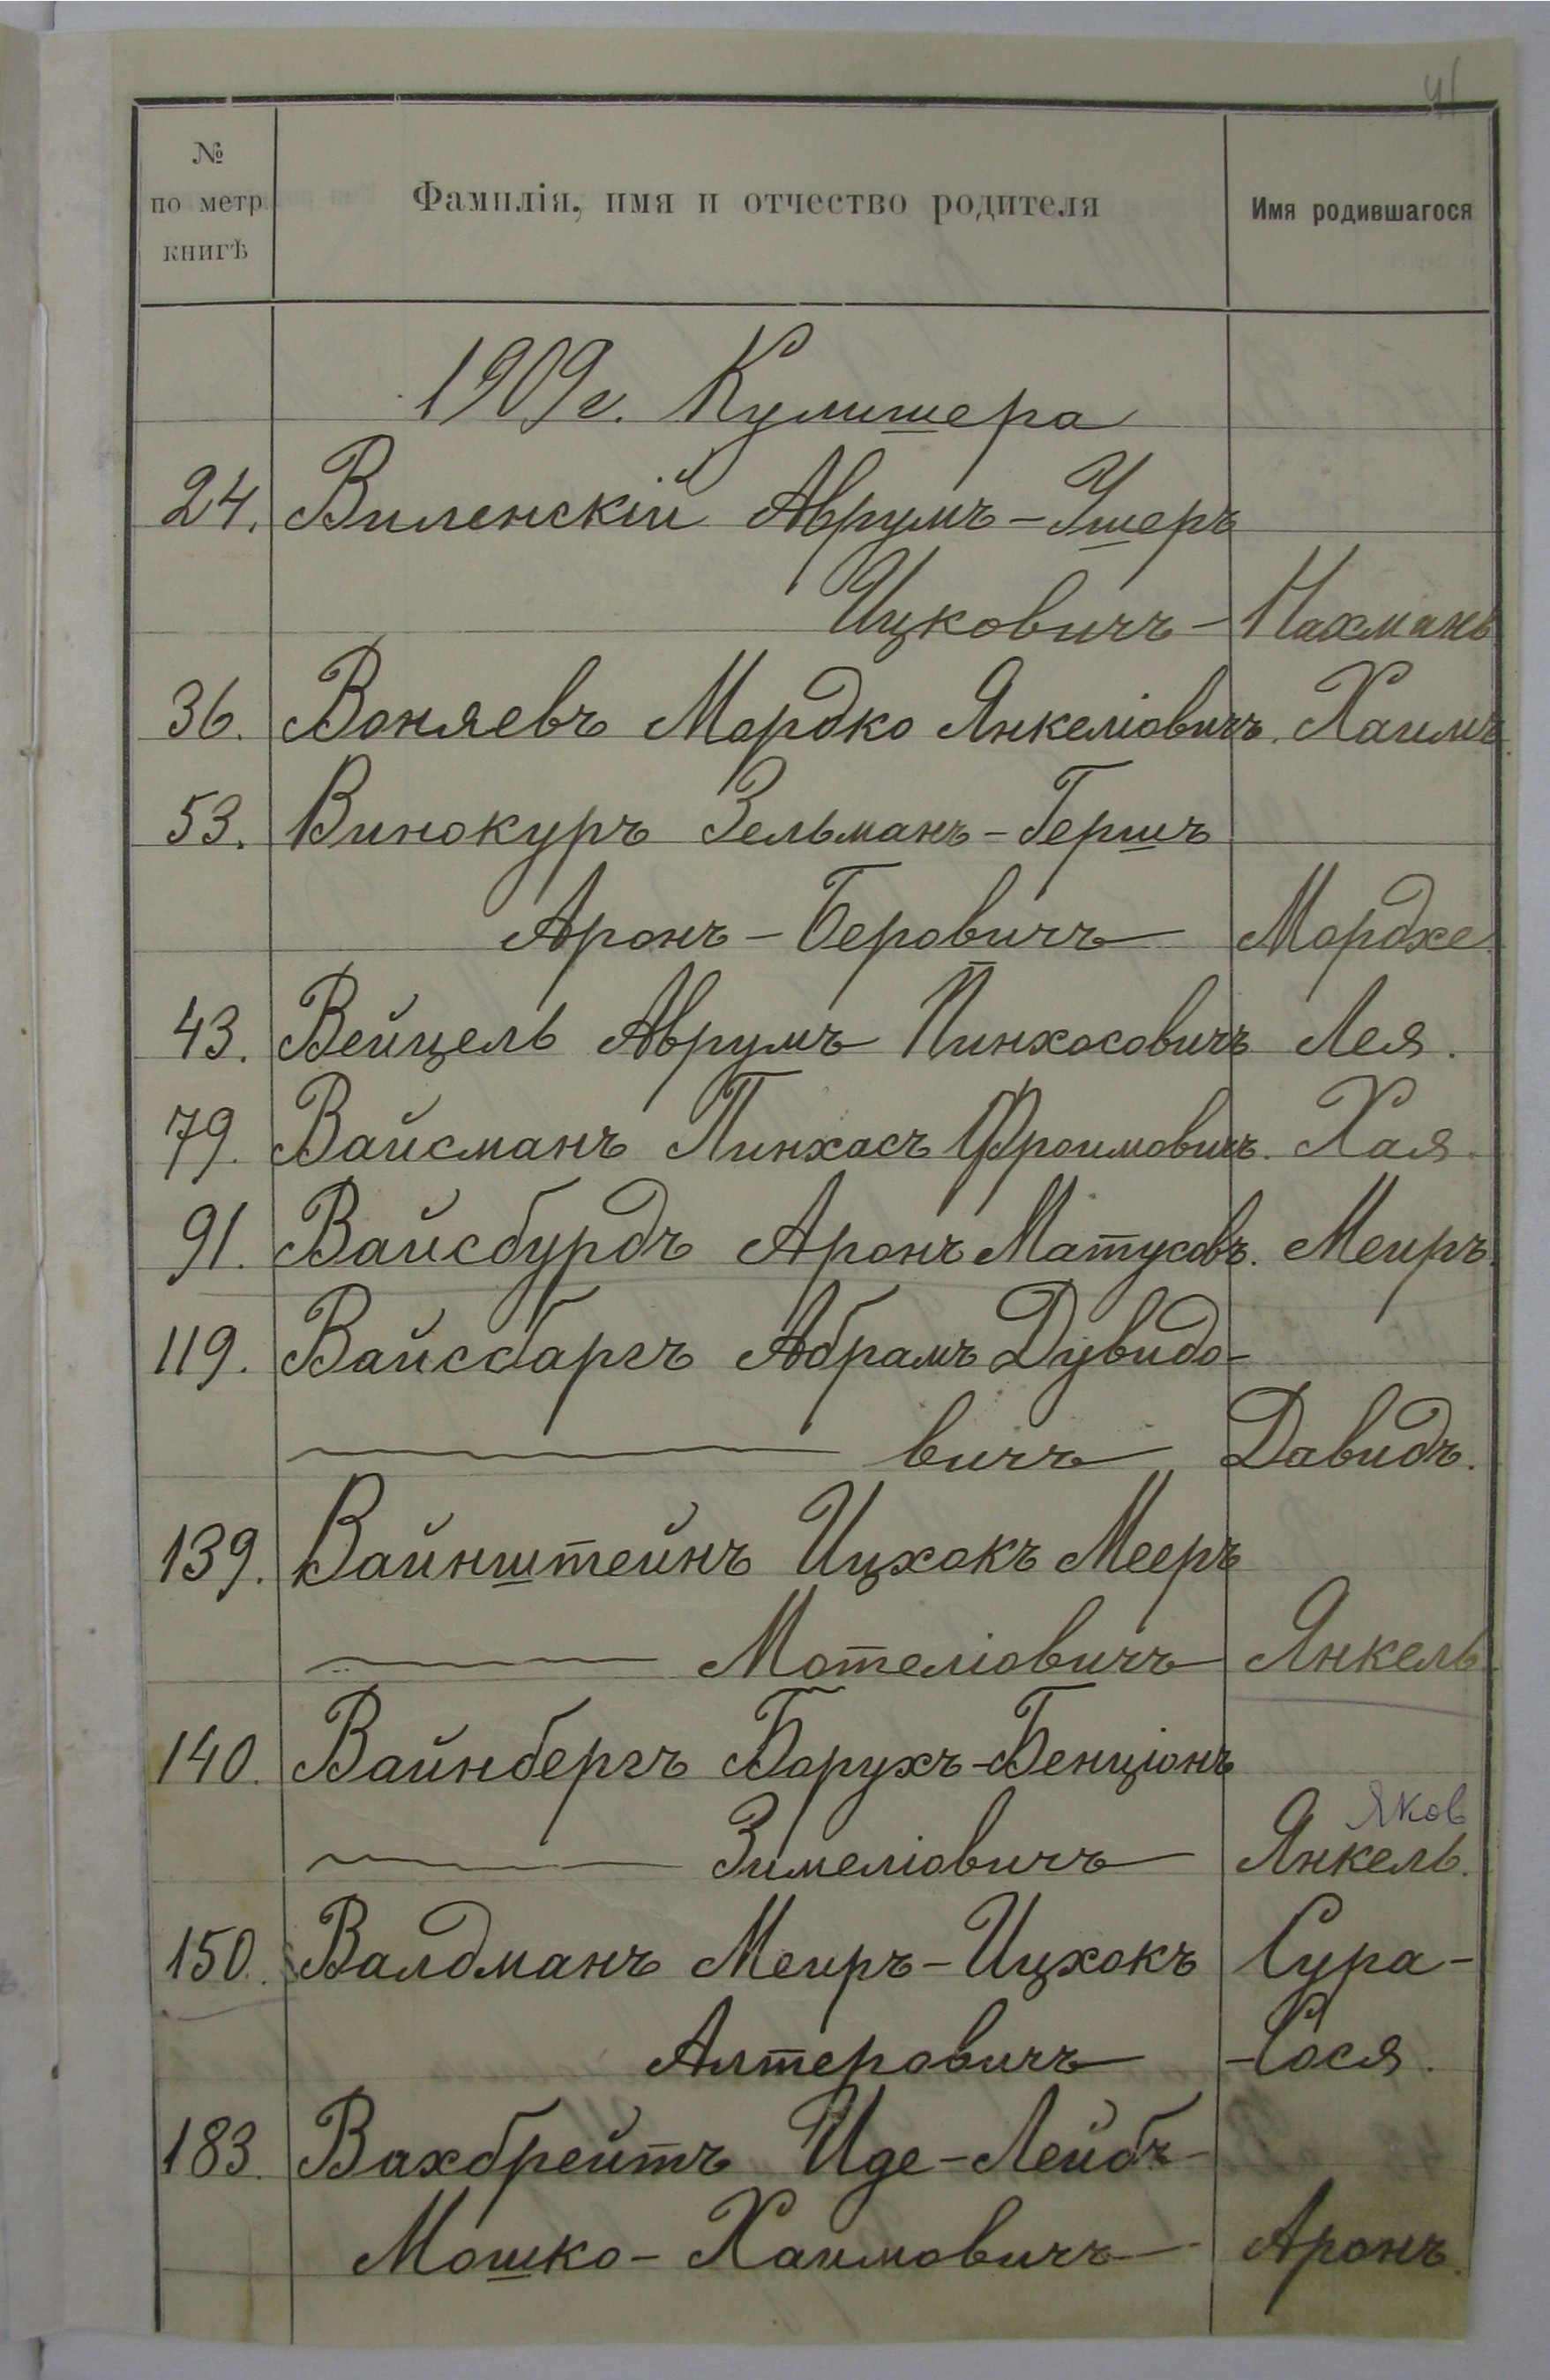 41
№
по метр.
книгѣ
Фамилія, имя и отчество родителя
Имя родившагося
1909 г. Кулишера
24. Виленскій Аврумъ-Ушеръ
Ицковичъ- Нахманъ
36. Воняевъ Мордко Янкеліовичъ. Хаимъ
53. Винокуръ Зельманъ-Гершъ
Аронъ-Беровичъ Мордхе
43. Вейцель Аврумъ Пинхосовичъ Лея.
79. Вайсманъ Пинхасъ Фроимовичъ. Хая.
91. Вайсбурдъ Аронъ Матусовъ. Меиръ.
119. Абрамъ Дувидо-
вичъ Давидъ.
139. Вайнштейнъ Ицхокъ Мееръ
Мотеліовичъ Янкель.
140. Вайнбергъ Борухъ-Бенціонъ
Яков
Зимеліовичъ Янкель.
150. Валдманъ Меиръ-Ицхокъ Сура-
Алтеровичъ -Сося.
183. Вахбрейтъ Иде-Лейбъ-
Мошко-Хаимовичъ Аронъ.